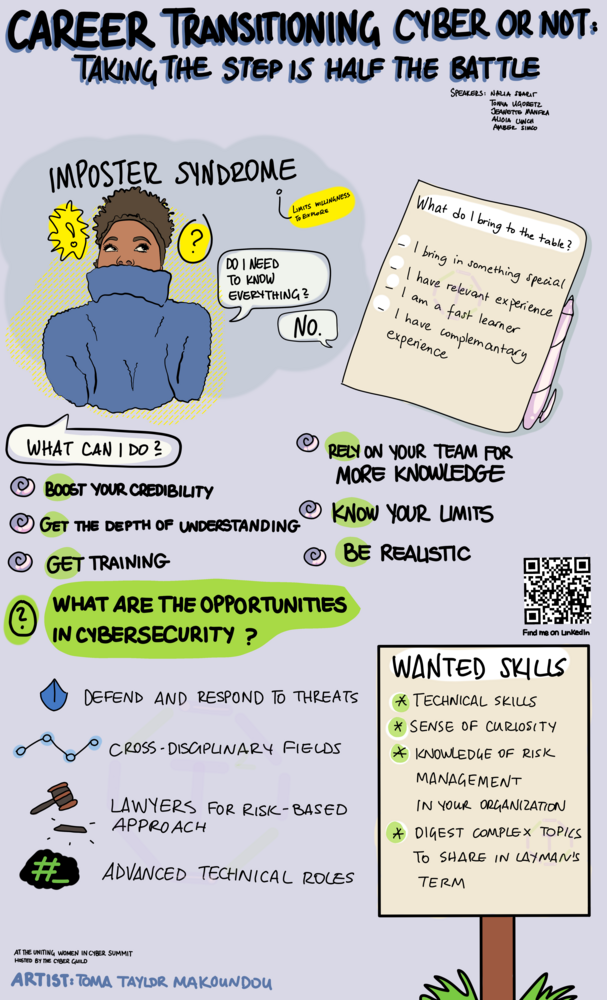 CAREER TRANSITIONING CYBER OR NOT:
TAKING THE STEP IS HALF THE BATTLE
SPEAKERS:
TONYA UGORETZ
JEANETTE MANFRA
ALICIA LYNCH
AMBER SIMCO
IMPOSTER SYNDROME
LIMITS WILLINGNESS
TO EXPLORE
!
?
DO I NEED
TO KNOW
EVERYTHING?
NO.
What do I bring to the table?
- I bring in something special
- I have relevant experience
- I am a fast learner
- I have complemantary
experience
WHAT CAN I DO?
BOOST YOUR CREDIBILITY
GET THE DEPTH OF UNDERSTANDING
GET TRAINING
RELY ON YOUR TEAM FOR
MORE KNOWLEDGE
KNOW YOUR LIMITS
BE REALISTIC
Find me on LinkedIn
? WHAT ARE THE OPPORTUNITIES
IN CYBERSECURITY ?
DEFEND AND RESPOND TO THREATS
CROSS-DISCIPLINARY FIELDS
LAWYERS FOR RISK-BASED
APPROACH
#_ ADVANCED TECHNICAL ROLES
WANTED SKILLS
* TECHNICAL SKILLS
* SENSE OF CURIOSITY
* KNOWLEDGE OF RISK
MANAGEMENT
IN YOUR ORGANIZATION
* DIGEST COMPLEX TOPICS
TO SHARE IN LAYMAN'S
TERM
AT THE UNITING WOMEN IN CYBER SUMMIT
HOSTED BY THE CYBER GUILD
ARTIST: TOMA TAYLOR MAKOUNDOU